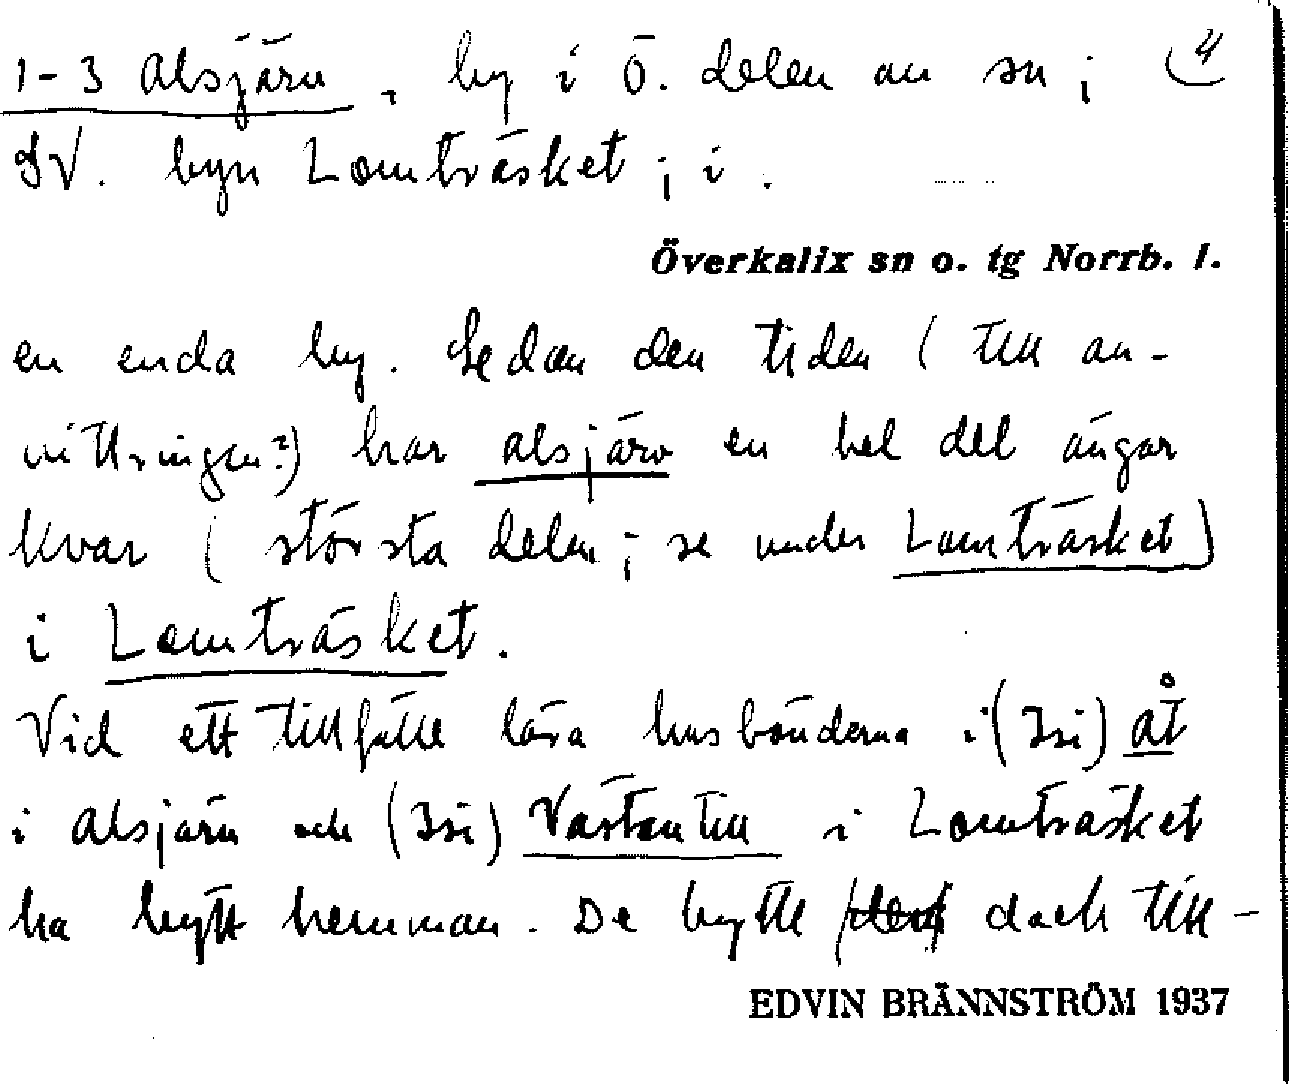 1-3 Alsjärv, by i ö. delen av sn; 4
SV. byn Lomträsket; i.
Överkalix sn o. tg Norrb. l.
en enda by. Sedan den tiden (till av-
vittringen?) har Alsjärv en hel del ängar
kvar (största delen; se under Lomträsket)
i Lomträsket.
Vid ett tillfälle lära husbönderna i (3si) åt
i Alsjärv och (3si) Västantill i Lomträsket
ha bytt hemman. De bytte dock till-
EDVIN BRÄNNSTRÖM 1937